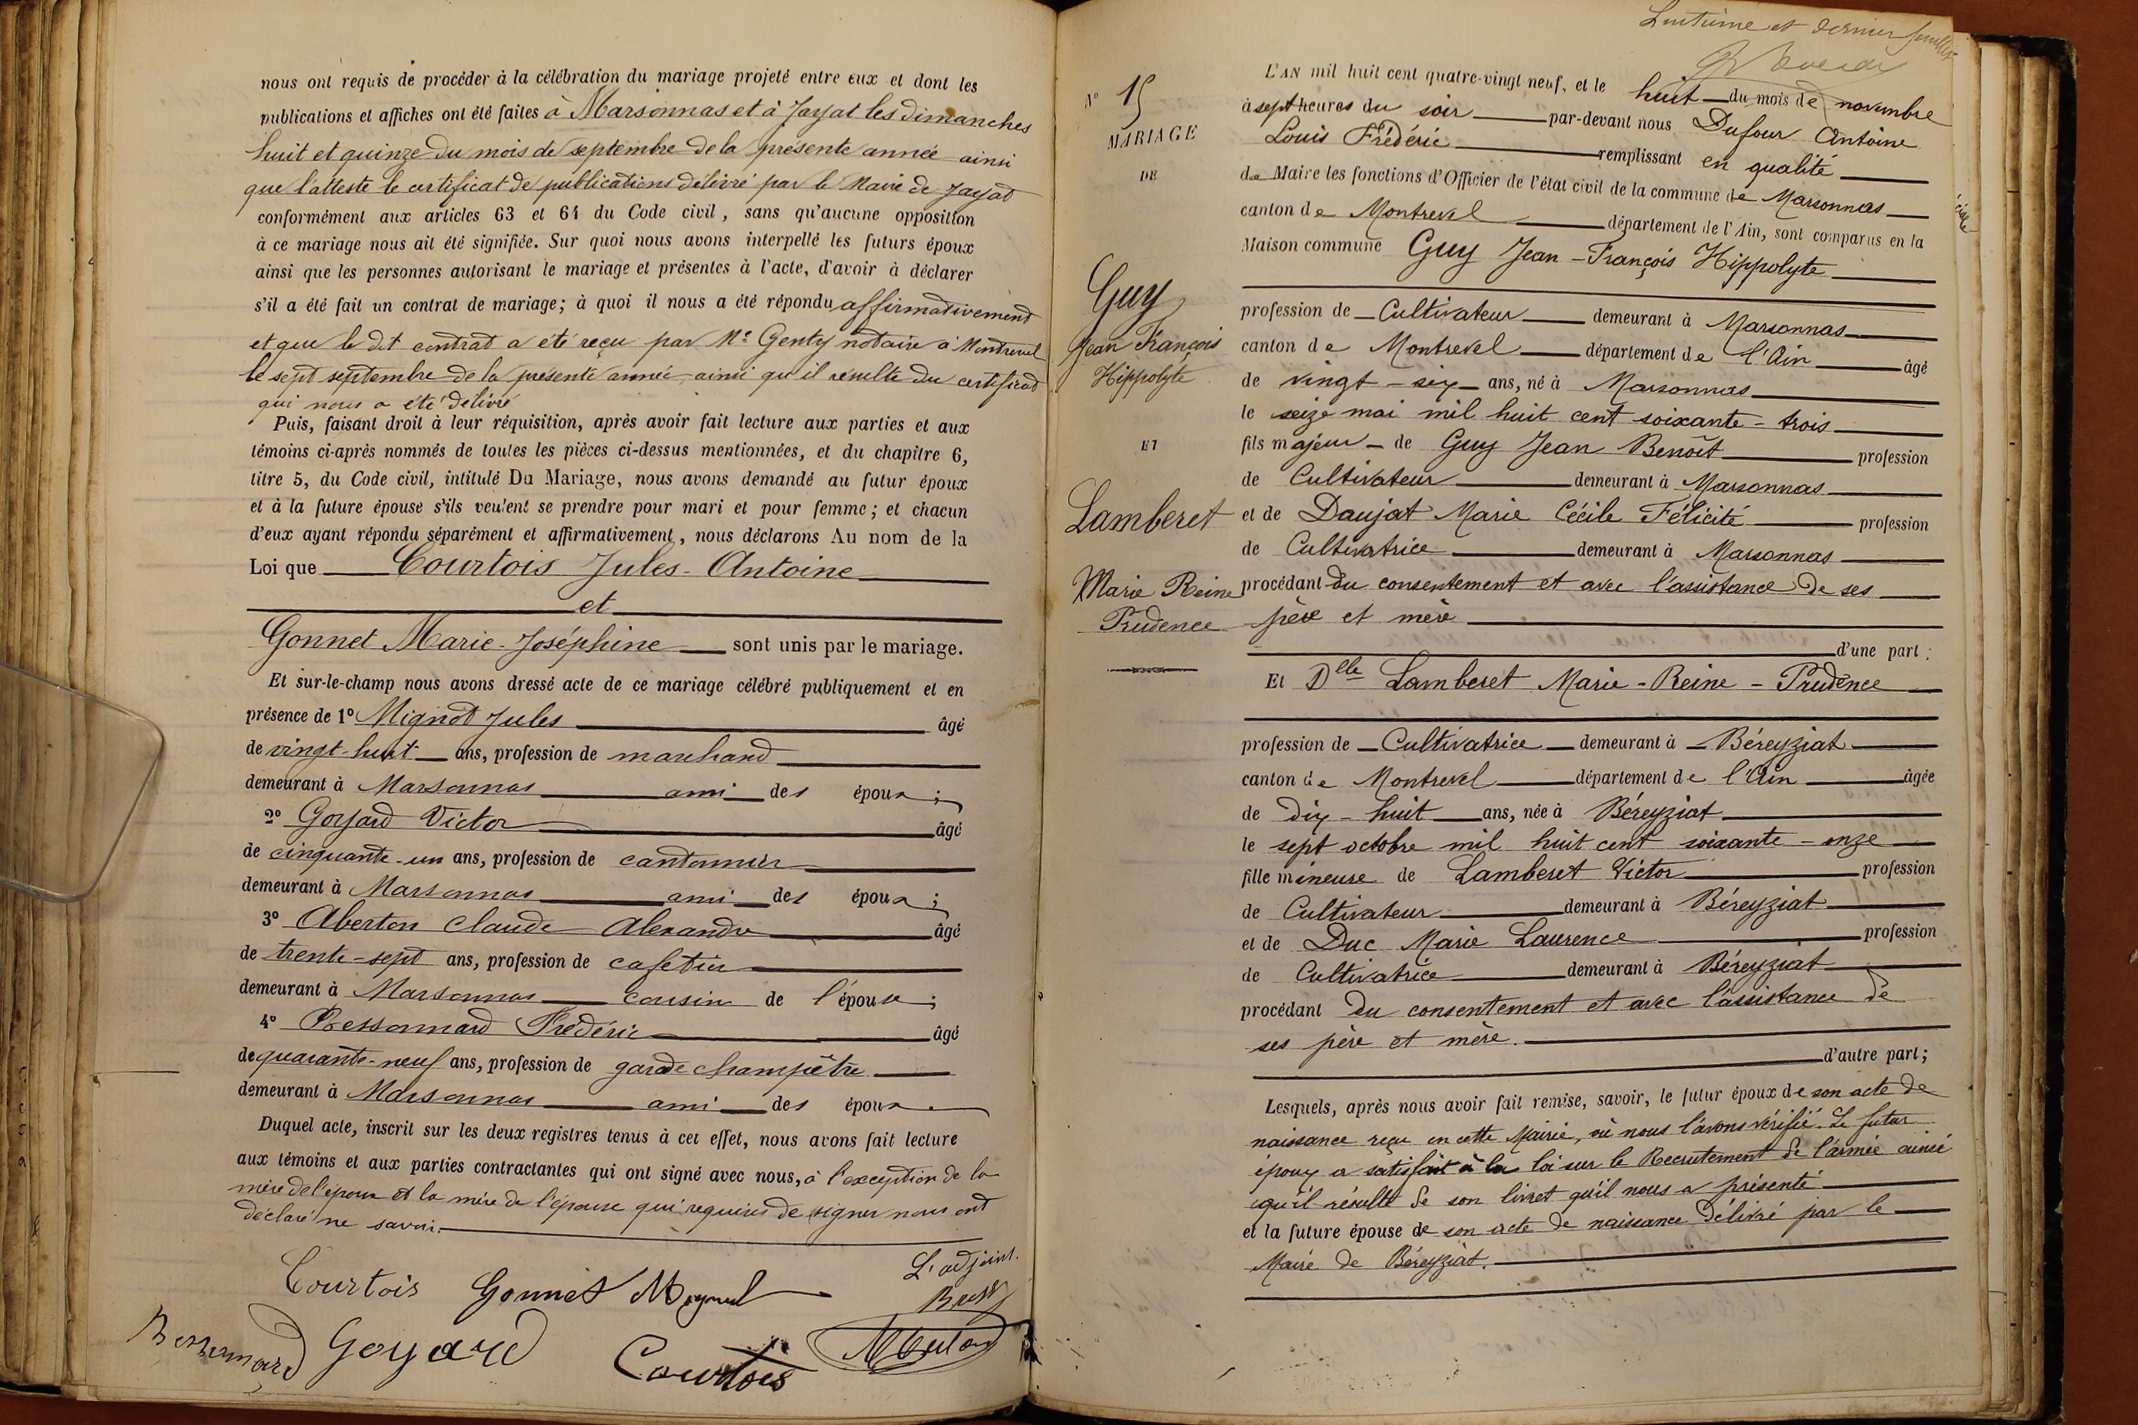 nous ont requis de procéder à la célébration du mariage projeté entre eux et dont les
publications et affiches ont été faites à Marsonnas et à Jayat les dimanches
huit et quinze du mois de septembre de la présente année ainsi
que l'atteste le certificat de publications délivré par le Maire de Jayat
conformément aux articles 63 et 64 du Code civil, sans qu'aucune opposition
à ce mariage nous ait été signifiée. Sur quoi nous avons interpellé les futurs époux
ainsi que les personnes autorisant le mariage et présentes à l'acte, d'avoir à déclarer
s'il a été fait un contrat de mariage; à quoi il nous a été répondu affirmativement
et que le dit contrat a été reçu par Me Genty notaire à Montrevel
le sept septembre de la présente année, ainsi qu'il résulte du certificat
qui nous a été délivré
Puis, faisant droit à leur réquisition, après avoir fait lecture aux parties et aux
témoins ci-après nommés de toutes les pièces ci-dessus mentionnées, et du chapitre 6,
titre 5, du Code civil, intitulé Du Mariage, nous avons demandé au futur époux
et à la future épouse s'ils veulent se prendre pour mari et pour femme; et chacun
d'eux ayant répondu séparément et affirmativement, nous déclarons Au nom de la
Loi que Courtois Jules-Antoine
et
Gonnet Marie-Joséphine sont unis par le mariage.
Et sur-le-champ nous avons dressé acte de ce mariage célébré publiquement et en
présence de 1º Mignot Jules âgé
de vingt-huit ans, profession de marchand
demeurant à Marsonnas ami des époux;
2º Goyard Victor âgé
de cinquante-un ans, profession de cantonnier
demeurant à Marsonnas ami des époux;
3º Aberton Claude Alexandre âgé
de trente-sept ans, profession de cafetier
demeurant à Marsonnas cousin de l'épouse;
4º Bessonnard Frédéric âgé
de quarante-neuf ans, profession de garde champêtre
demeurant à Marsonnas ami des époux.
Duquel acte, inscrit sur les deux registres tenus à cet effet, nous avons fait lecture
aux témoins et aux parties contractantes qui ont signé avec nous, à l'exception de la
mère de l'époux et la mère de l'épouse qui requises de signer nous ont
déclaré ne savoir.
L'adjoint.
Courtois Gonnet
Bessonnard Goyard Courtois
Nº 15
MARIAGE
DE
Guy
Jean François
Hippolyte
ET
Lamberet
Marie Reine
Prudence
et dernier feuillet
L'AN mil huit cent quatre-vingt neuf, et le huit du mois de novembre
à sept heures du soir par-devant nous Dufour Antoine
Louis Frédéric remplissant en qualité
de Maire les fonctions d'Officier de l'état civil de la commune de Marsonnas
canton de Montrevel département de l'Ain, sont comparus en la
Maison commune Guy Jean-François Hippolyte
profession de Cultivateur demeurant à Marsonnas
canton de Montrevel département de l'Ain âgé
de vingt-six ans, né à Marsonnas
le seize mai mil huit cent soixante-trois
fils majeur de Guy Jean Benoît profession
de Cultivateur demeurant à Marsonnas
et de Daujat Marie Cécile Félicité profession
de Cultivatrice demeurant à Marsonnas
procédant du consentement et avec l'assistance de ses
père et mère
d'une part;
Et Delle Lamberet Marie-Reine-Prudence
profession de Cultivatrice demeurant à Béreyziat
canton de Montrevel département de l'Ain âgée
de dix-huit ans, née à Béreyziat
le sept octobre mil huit cent soixante-onze
fille mineure de Lamberet Victor profession
de Cultivateur demeurant à Béreyziat
et de Duc Marie Laurence profession
de Cultivatrice demeurant à Béreyziat
procédant du consentement et avec l'assistance de
ses père et mère.
d'autre part;
Lesquels, après nous avoir fait remise, savoir, le futur époux de son acte de
naissance reçu en cette Mairie, où nous l'avons vérifié. Le futur
époux a satisfait à la loi sur le Recrutement de l'armée ainsi
qu'il résulte de son livret qu'il nous a présenté
et la future épouse de son acte de naissance délivré par le
Maire de Béreyziat.